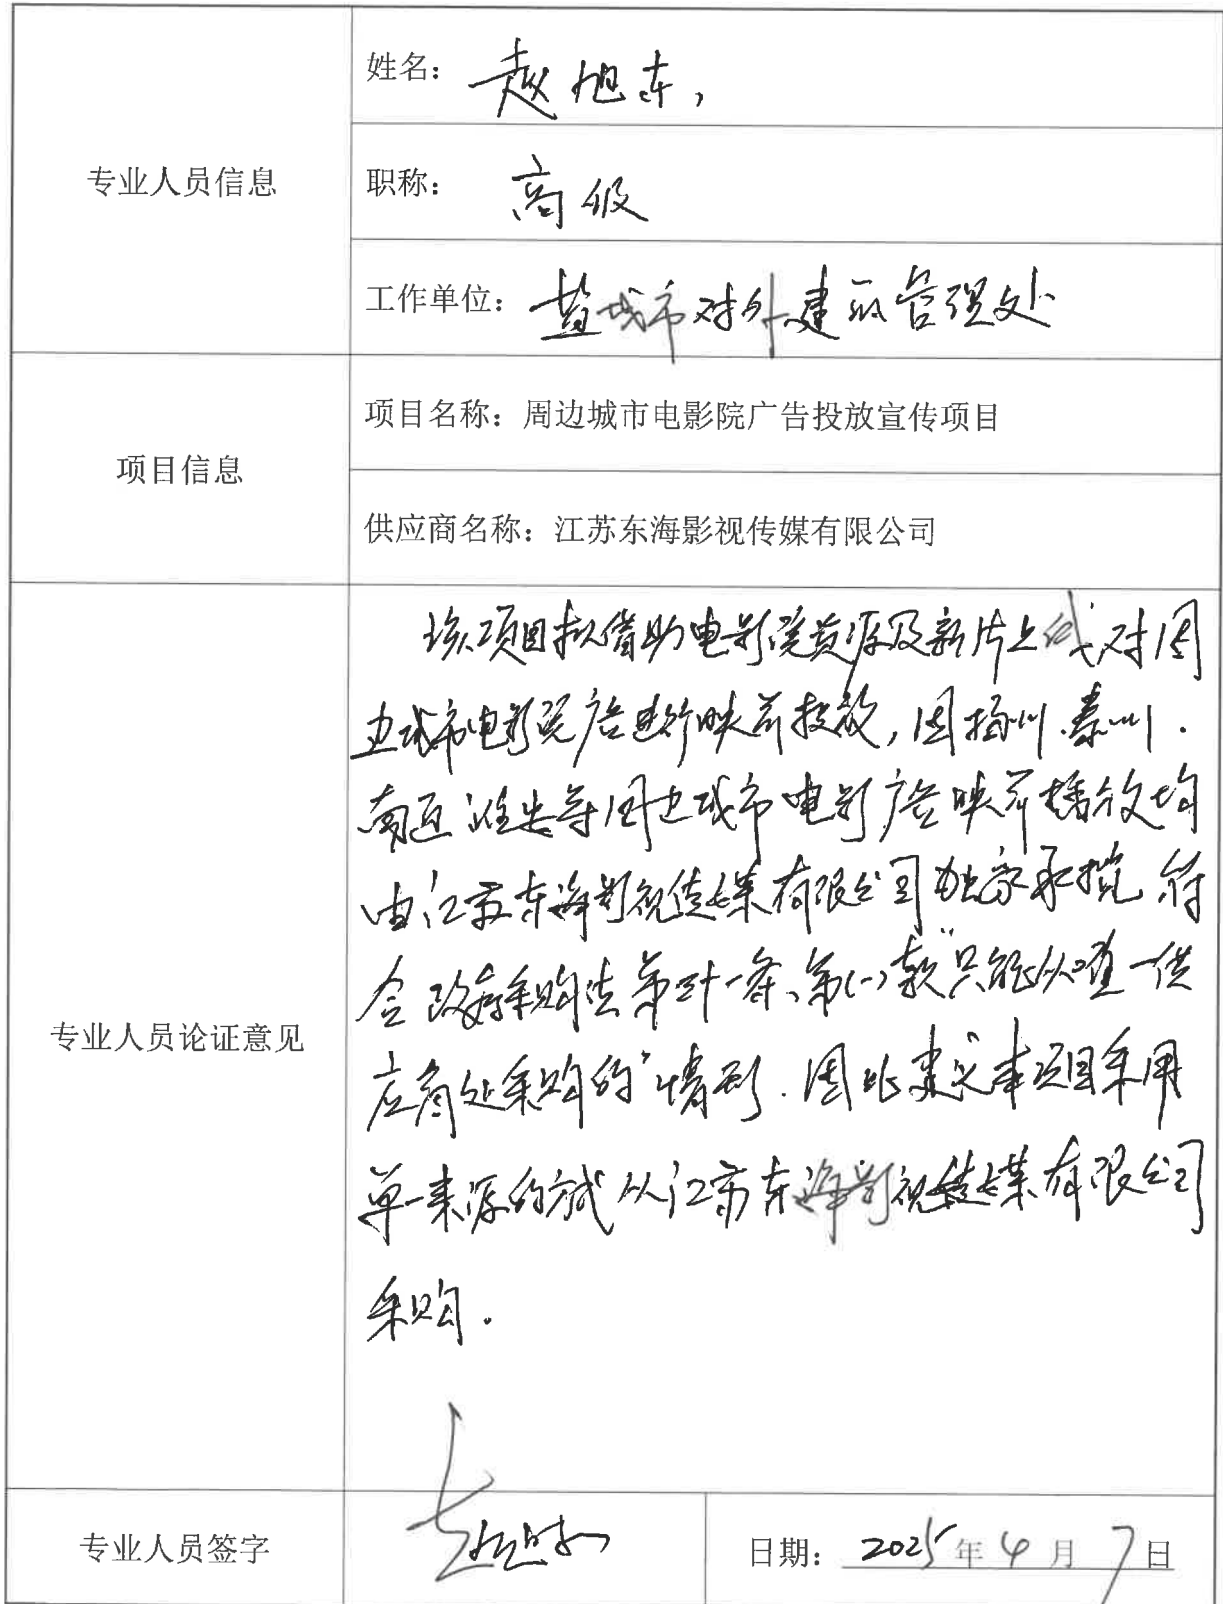 专业人员信息
姓名：赵旭东，
职称：高级
工作单位：盐城市对外建筑管理处
项目信息
项目名称：周边城市电影院广告投放宣传项目
供应商名称：江苏东海影视传媒有限公司
专业人员论证意见
该项目拟借助电影院资源及新片上线对周
边城市电影院广告进行映前投放，因扬州.泰州.
南通淮安等周边城市电影广告映前播放均
由江苏东海影视传媒有限公司独家承揽.符
合政府采购法第三十一条、第(一)款"只能从唯一供
应商处采购的"情形.因此建议本项目采用
单一来源的方式从江苏东海影视传媒有限公司
采购.
专业人员签字
日期：2025年4月7日